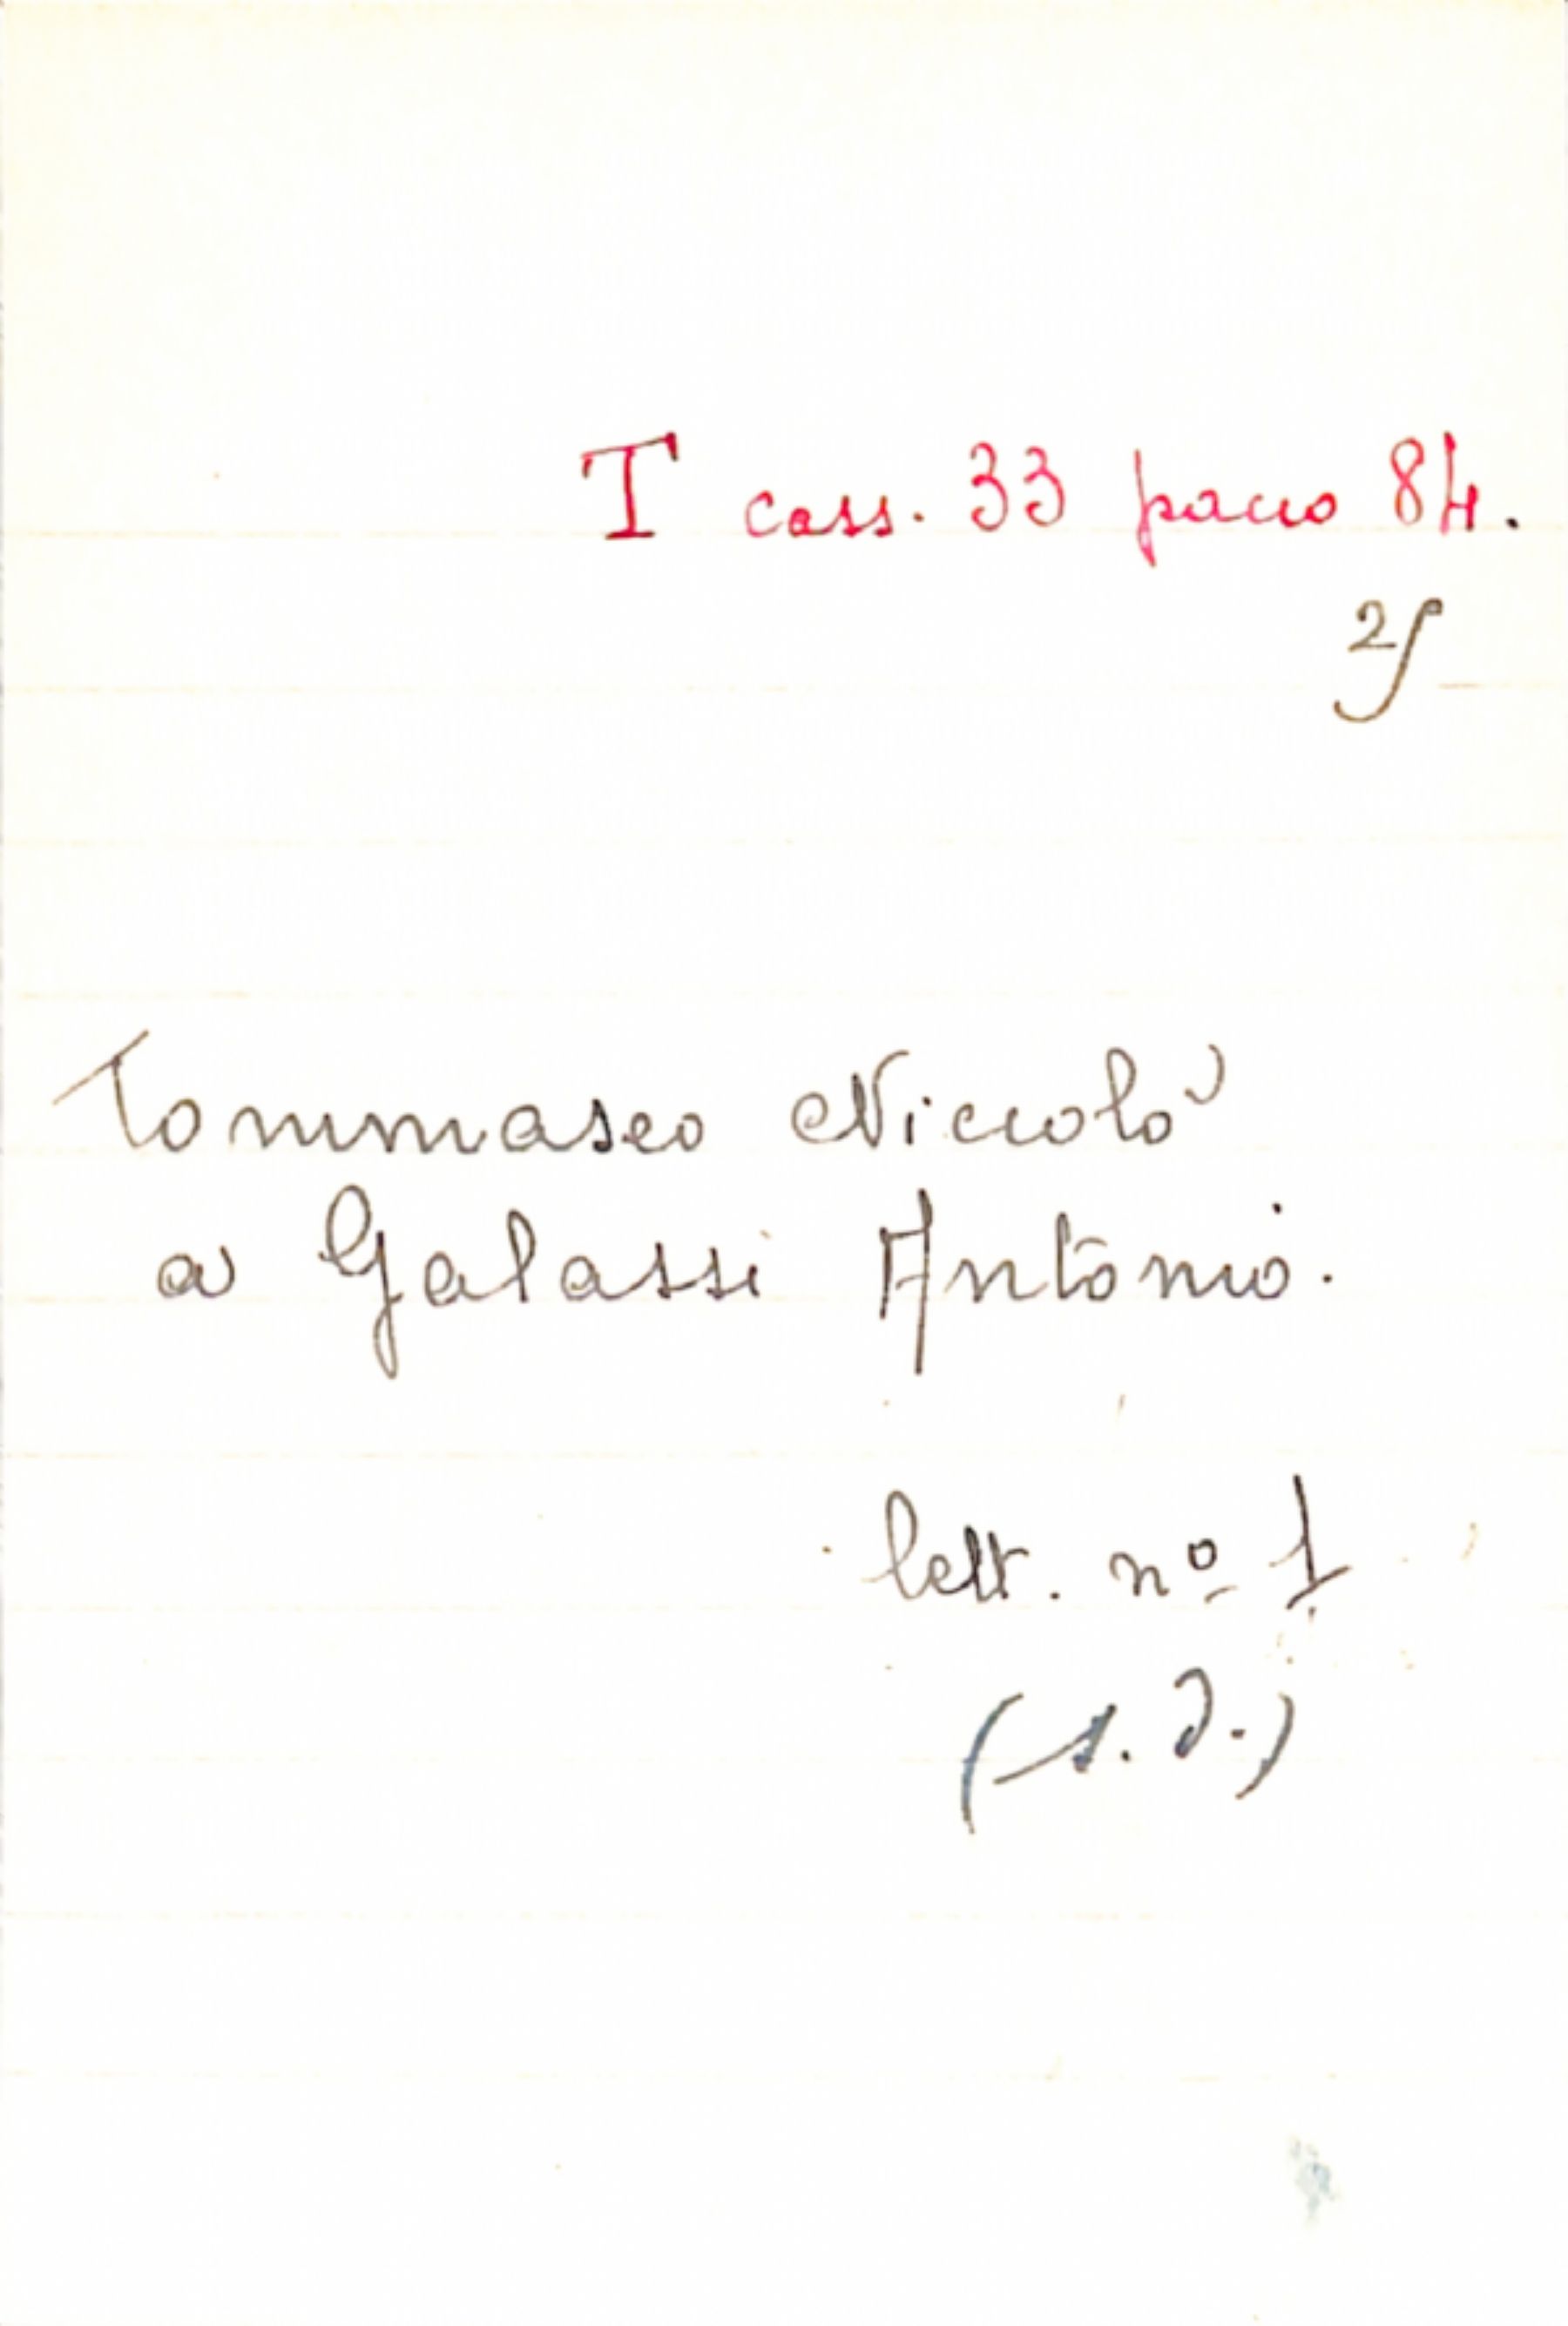 T cass. 33 pacco 84.
Tommaseo Niccolò
a Galassi Antonio.
lett. nº 1
(s. d.)